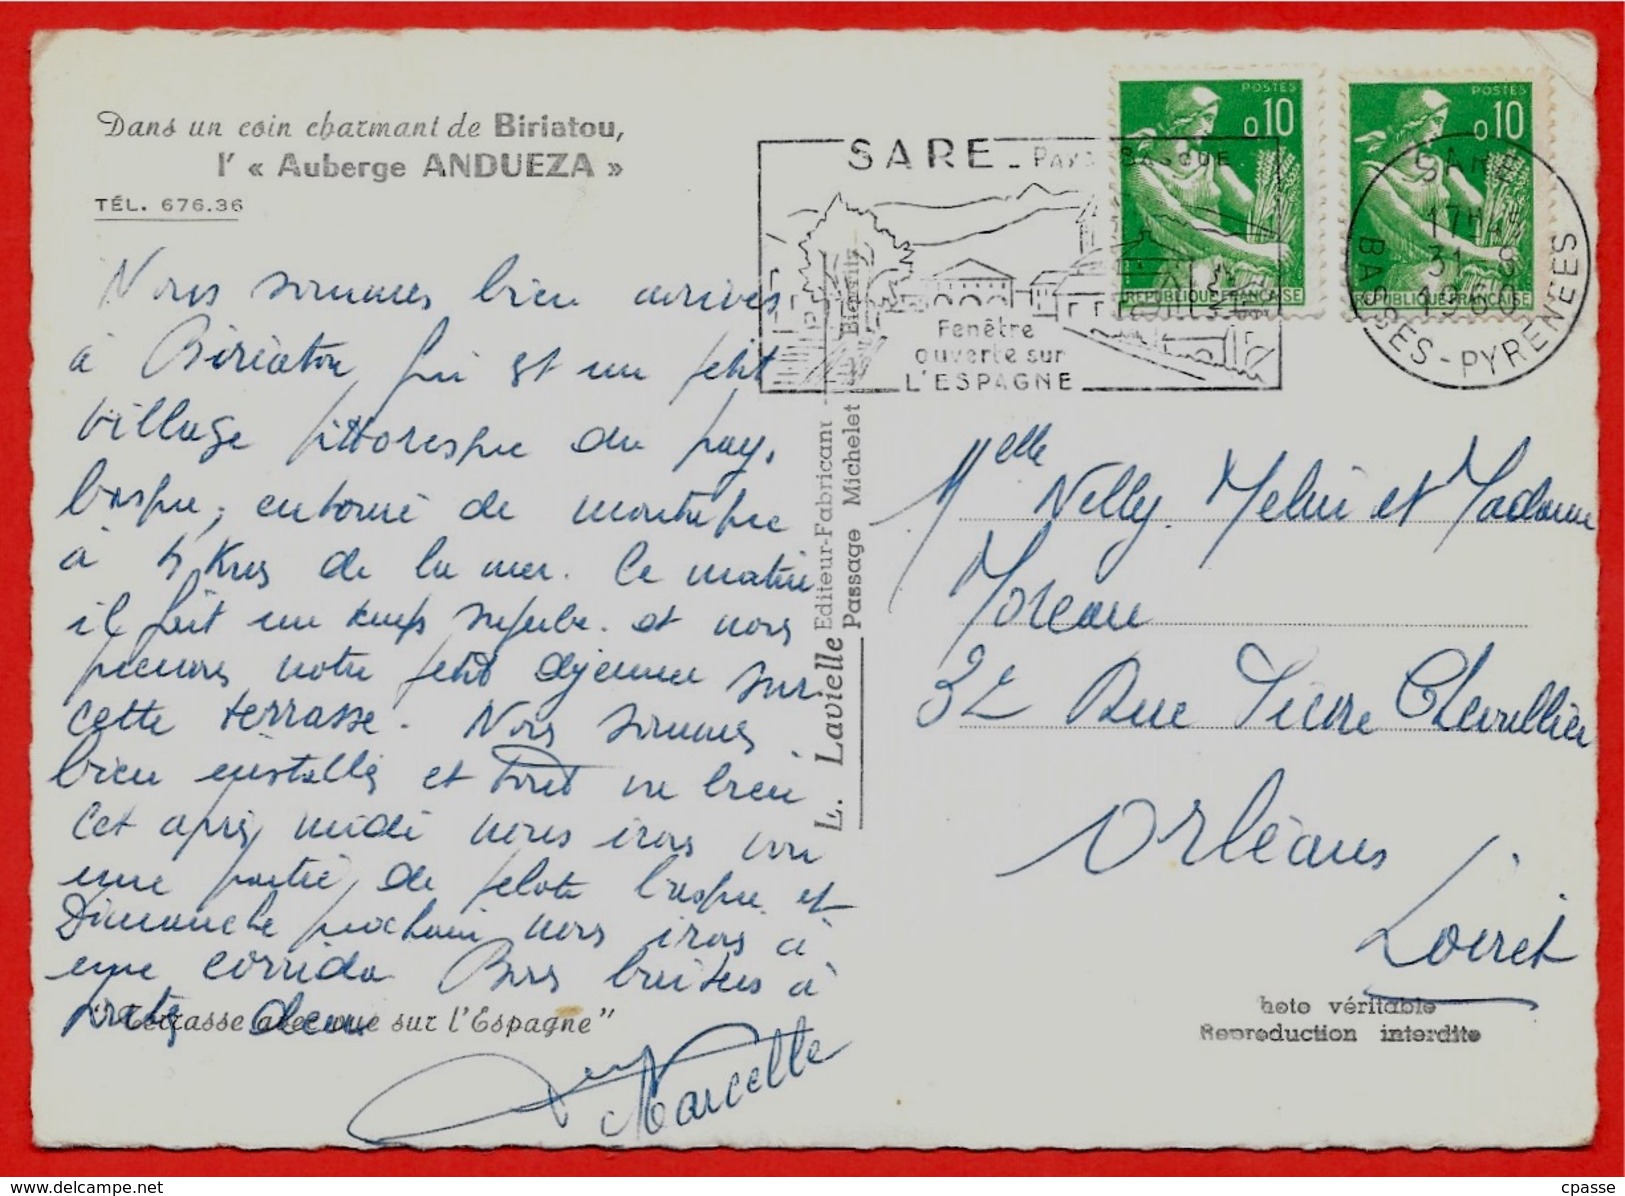 Dans un coin charmant de Biriatou,
l' « Auberge ANDUEZA »
TÉL. 676.36
Nous sommes bien arrivés
à Biriatou qui est un petit
village pittoresque du pays
basque, entouré de montagne
à 5 Kms de la mer. Ce matin
il fait un temps superbe et nous
prenons notre petit déjeuner sur
cette terrasse. Nous sommes
bien installés et tout va bien
Cet après midi nous irons voir
une partie de pelote basque et
Dimanche prochain nous irons à
une corrida Bons baisers à
toutes deux
"Terrasse avec vue sur l'Espagne"
Marcelle
L. Lavielle Editeur-Fabricant
Passage Michelet Biarritz
SARE - PAYS BASQUE
Fenêtre
ouverte sur
L'ESPAGNE
POSTES
0,10
REPUBLIQUE FRANÇAISE
POSTES
0,10
REPUBLIQUE FRANÇAISE
SARE
31 - 8
1960
BASSES-PYRENEES
Melle Nelly Melin et Madame
Moreau
32 Rue Pierre Chevallier
Orléans
Loiret
hoto véritable
Reproduction interdite
delcampe.net
cpasse